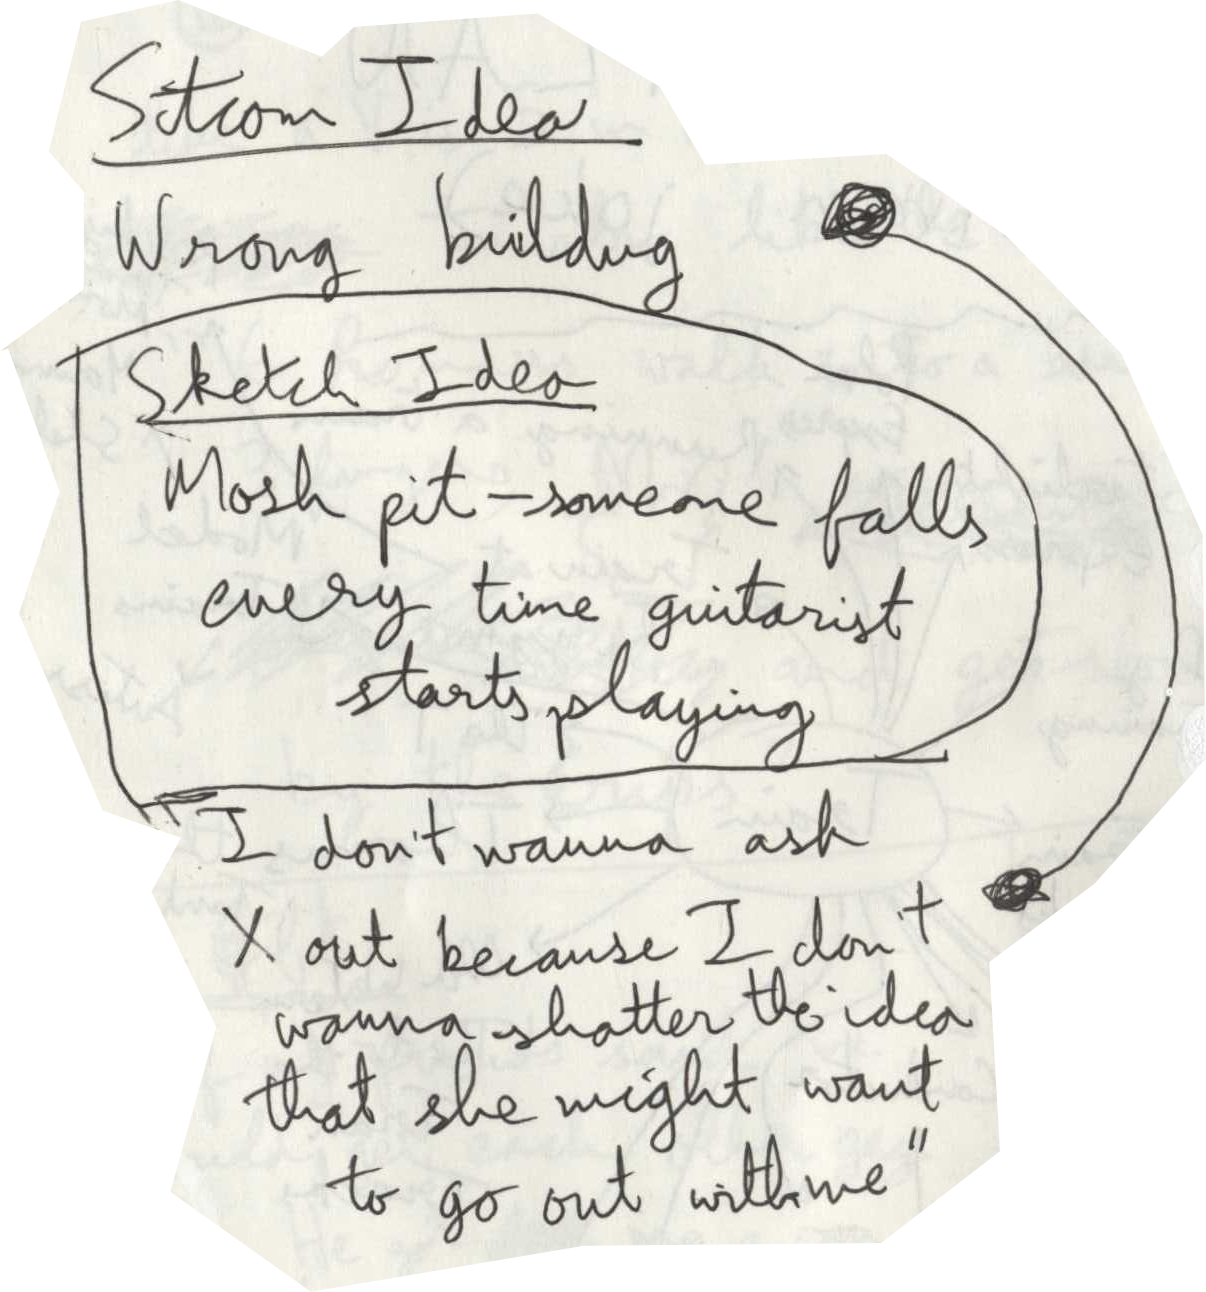 Sitcom Idea
Wrong building
Sketch Idea
Mosh pit - someone falls
every time guitarist
starts playing
"I don't wanna ask
X out because I don't
wanna shatter the idea
that she might want
to go out with me"